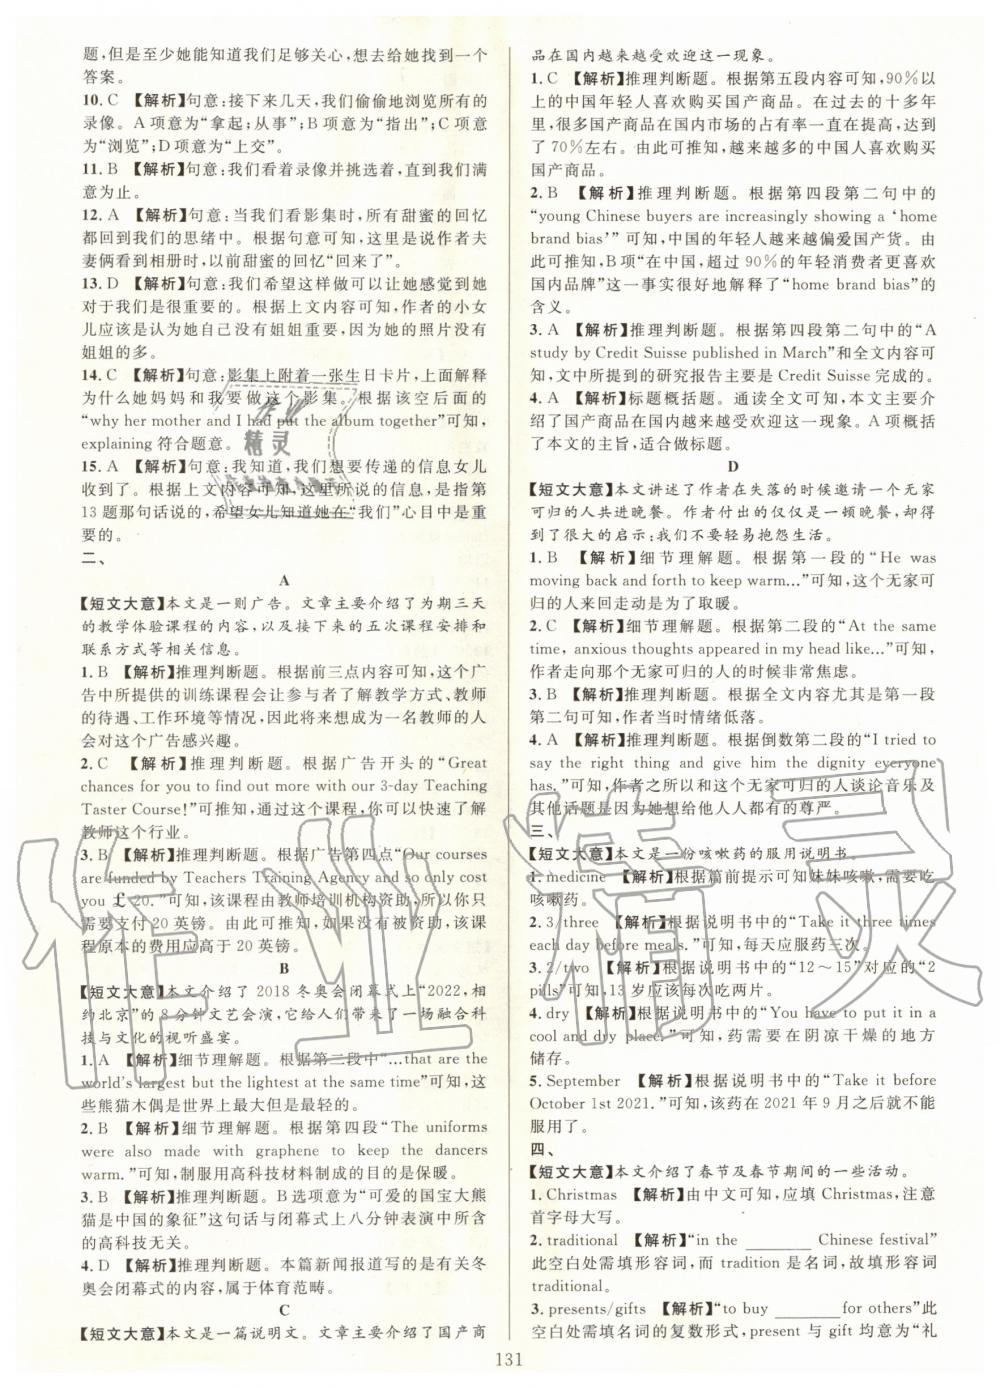 题,但是至少她能知道我们足够关心,想去给她找到一个
答案。
10. C 【解析】句意:接下来几天,我们偷偷地浏览所有的
录像。A 项意为“拿起;从事”;B 项意为“指出”;C 项意
为“浏览”;D 项意为“上交”。
11. B 【解析】句意:我们看着录像并挑选着,直到我们满
意为止。
12. A 【解析】句意:当我们看影集时,所有甜蜜的回忆
都回到我们的思绪中。根据句意可知,这里是说作者夫
妻俩看到相册时,以前甜蜜的回忆“回来了”。
13. D 【解析】句意:我们希望这样做可以让她感觉到她
对于我们是很重要的。根据上文内容可知,作者的小女
儿应该是认为她自己没有姐姐重要,因为她的照片没有
姐姐的多。
14. C 【解析】句意:影集上附着一张生日卡片,上面解释
为什么她妈妈和我要做这个影集。根据该空后面的
“why her mother and I had put the album together”可知,
explaining 符合题意。
15. A 【解析】句意:我知道,我们想要传递的信息女儿
收到了。根据上文内容可知,这里所说的信息,是指第
13 题那句话说的,希望女儿知道她在“我们”心目中是重
要的。
二、
A
【短文大意】本文是一则广告。文章主要介绍了为期三天
的教学体验课程的内容,以及接下来的五次课程安排和
联系方式等相关信息。
1. B 【解析】推理判断题。根据前三点内容可知,这个广
告中所提供的训练课程会让参与者了解教学方式、教师
的待遇、工作环境等情况,因此将来想成为一名教师的人
会对这个广告感兴趣。
2. C 【解析】推理判断题。根据广告开头的“Great
chances for you to find out more with our 3-day Teaching
Taster Course!”可推知,通过这个课程,你可以快速了解
教师这个行业。
3. B 【解析】推理判断题。根据广告第四点“Our courses
are funded by Teachers Training Agency and so only cost
you £ 20.”可知,该课程由教师培训机构资助,所以只
需要支付 20 英镑。由此可推知,如果没有被资助,该课
程原本的费用应高于 20 英镑。
B
【短文大意】本文介绍了 2018 冬奥会闭幕式上“2022,相
约北京”的 8 分钟文艺会演,它给人们带来了一场融合科
技与文化的视听盛宴。
1. A 【解析】细节理解题。根据第三段中“…that are the
world's largest but the lightest at the same time”可知,这
些熊猫木偶是世界上最大但是最轻的。
2. B 【解析】细节理解题。根据第四段“The uniforms
were also made with graphene to keep the dancers
warm.”可知,制服用高科技材料制成的目的是保暖。
3. B 【解析】推理判断题。B 选项意为“可爱的国宝大熊
猫是中国的象征”这句话与闭幕式上八分钟表演中所提
的高科技无关。
4. D 【解析】推理判断题。本篇新闻报道写的是有关冬
奥会闭幕式的内容,属于体育范畴。
C
【短文大意】本文是一篇说明文。文章主要介绍了国产商
品在国内越来越受欢迎这一现象。
1. C 【解析】推理判断题。根据第五段内容可知,90%以
上的中国年轻人喜欢购买国产商品。在过去的十多年
里,很多国产商品在国内市场的占有率一直在提高,达到
了 70%左右。由此可推知,越来越多的中国人喜欢购买
国产商品。
2. B 【解析】推理判断题。根据第四段第二句中的
“young Chinese buyers are increasingly showing a ‘home
brand bias’”可知,中国的年轻人越来越偏爱国产货。由
此可推知,B 项“在中国,超过 90%的年轻消费者更喜欢
国内品牌”这一事实很好地解释了“home brand bias”的
含义。
3. A 【解析】推理判断题。根据第四段第二句中的“A
study by Credit Suisse published in March”和全文内容可
知,文中所提到的研究报告主要是 Credit Suisse 完成的。
4. A 【解析】标题概括题。通读全文可知,本文主要介
绍了国产商品在国内越来越受欢迎这一现象。A 项概括
了本文的主旨,适合做标题。
D
【短文大意】本文讲述了作者在失落的时候邀请一个无家
可归的人共进晚餐。作者付出的仅仅是一顿晚餐,却得
到了很大的启示:我们不要轻易抱怨生活。
1. B 【解析】细节理解题。根据第一段的“He was
moving back and forth to keep warm…”可知,这个无家可
归的人来回走动是为了取暖。
2. C 【解析】细节理解题。根据第二段的“At the same
time, anxious thoughts appeared in my head like…”可知,
作者走向那个无家可归的人的时候非常焦虑。
3. B 【解析】推理判断题。根据全文内容尤其是第一段
第二句可知,作者当时情绪低落。
4. A 【解析】推理判断题。根据倒数第二段的“I tried to
say the right thing and give him the dignity everyone
has.”可知,作者之所以和这个无家可归的人谈论音乐及
其他话题是因为她想给他人人都有的尊严。
三、
【短文大意】本文是一份咳嗽药的服用说明书。
1. medicine 【解析】根据篇前提示可知妹妹咳嗽,需要吃
咳嗽药。
2. 3/three 【解析】根据说明书中的“Take it three times
each day before meals.”可知,每天应服药三次。
3. 2/two 【解析】根据说明书中的“12～15”对应的“2
pills”可知,13 岁应该每次吃两片。
4. dry 【解析】根据说明书中的“You have to put it in a
cool and dry place.”可知,药需要在阴凉干燥的地方
储存。
5. September 【解析】根据说明书中的“Take it before
October 1st 2021.”可知,该药在 2021 年 9 月之后就不能
服用了。
四、
【短文大意】本文介绍了春节及春节期间的一些活动。
1. Christmas 【解析】由中文可知,应填 Christmas,注意
首字母大写。
2. traditional 【解析】“in the ________ Chinese festival”
此空白处需填形容词,而 tradition 是名词,故填形容词
traditional.
3. presents/gifts 【解析】“to buy ________ for others”此
空白处需填名词的复数形式,present 与 gift 均意为“礼
131
作业
精灵
作业精灵